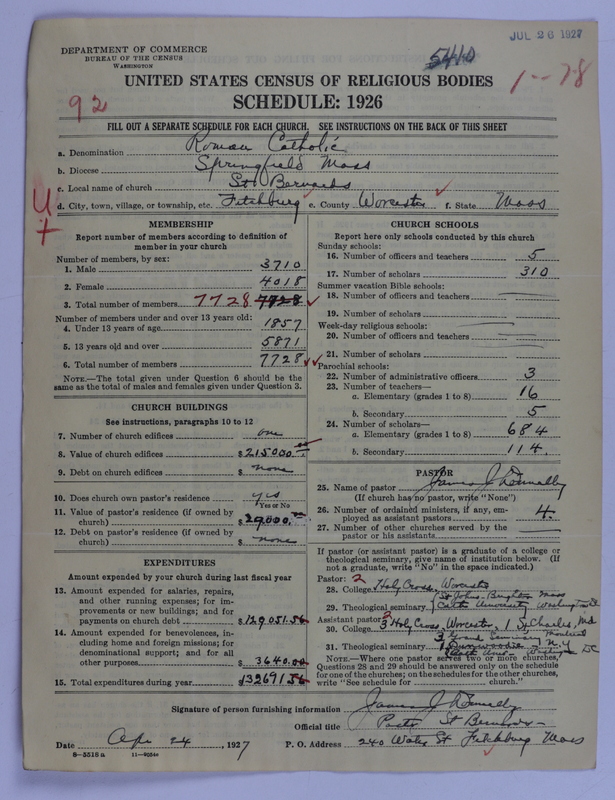 JUL 26 1927
DEPARTMENT OF COMMERCE
BUREAU OF THE CENSUS
WASHINGTON
5410
1-78
92
UNITED STATES CENSUS OF RELIGIOUS BODIES
SCHEDULE: 1926
FILL OUT A SEPARATE SCHEDULE FOR EACH CHURCH. SEE INSTRUCTIONS ON THE BACK OF THIS SHEET
a. Denomination Roman Catholic
b. Diocese Springfield Mass
c. Local name of church St Bernards
d. City, town, village, or township, etc. Fitchburg e. County Worcester f. State Mass
MEMBERSHIP
Report number of members according to definition of
member in your church
Number of members, by sex:
1. Male 3710
2. Female 4018
3. Total number of members 7728 7728
Number of members under and over 13 years old:
4. Under 13 years of age 1857
5. 13 years old and over 5871
6. Total number of members 7728
NOTE.—The total given under Question 6 should be the
same as the total of males and females given under Question 3.
CHURCH BUILDINGS
See instructions, paragraphs 10 to 12
7. Number of church edifices one
8. Value of church edifices $215000.00
9. Debt on church edifices $ none
10. Does church own pastor's residence yes
Yes or No
11. Value of pastor's residence (if owned by
church) $29,000.
12. Debt on pastor's residence (if owned by
church) $ none
EXPENDITURES
Amount expended by your church during last fiscal year
13. Amount expended for salaries, repairs,
and other running expenses; for im-
provements or new buildings; and for
payments on church debt $129051.56
14. Amount expended for benevolences, in-
cluding home and foreign missions; for
denominational support; and for all
other purposes 3640.00
15. Total expenditures during year $132691.56
CHURCH SCHOOLS
Report here only schools conducted by this church
Sunday schools:
16. Number of officers and teachers 5
17. Number of scholars 310
Summer vacation Bible schools:
18. Number of officers and teachers
19. Number of scholars
Week-day religious schools:
20. Number of officers and teachers
21. Number of scholars
Parochial schools:
22. Number of administrative officers 3
23. Number of teachers—
a. Elementary (grades 1 to 8) 16
b. Secondary 5
24. Number of scholars—
a. Elementary (grades 1 to 8) 684
b. Secondary 114
PASTOR
25. Name of pastor James J Donnelly
(If church has no pastor, write "None")
26. Number of ordained ministers, if any, em-
ployed as assistant pastors 4
27. Number of other churches served by the
pastor or his assistants
If pastor (or assistant pastor) is a graduate of a college or
theological seminary, give name of institution below. (If
not a graduate, write "No" in the space indicated.)
Pastor: 2
28. College Holy Cross, Worcester
St Johns. Brighton Mass
29. Theological seminary Cath University Washington DC
Assistant pastor: 2
30. College 3 Holy Cross, Worcester, 1 St Charles, Md
3 Grand Seminary Montreal
31. Theological seminary 1 Dunwoodie N.Y
Cath Univ - Washington DC
NOTE.—Where one pastor serves two or more churches,
Questions 28 and 29 should be answered only on the schedule
for one of the churches; on the schedules for the other churches,
write "See schedule for church."
Signature of person furnishing information James J Donnelly
Official title Pastor St Bernards
Date Apr 24, 1927 P. O. Address 240 Water St Fitchburg Mass
8-5518 a 11-9034